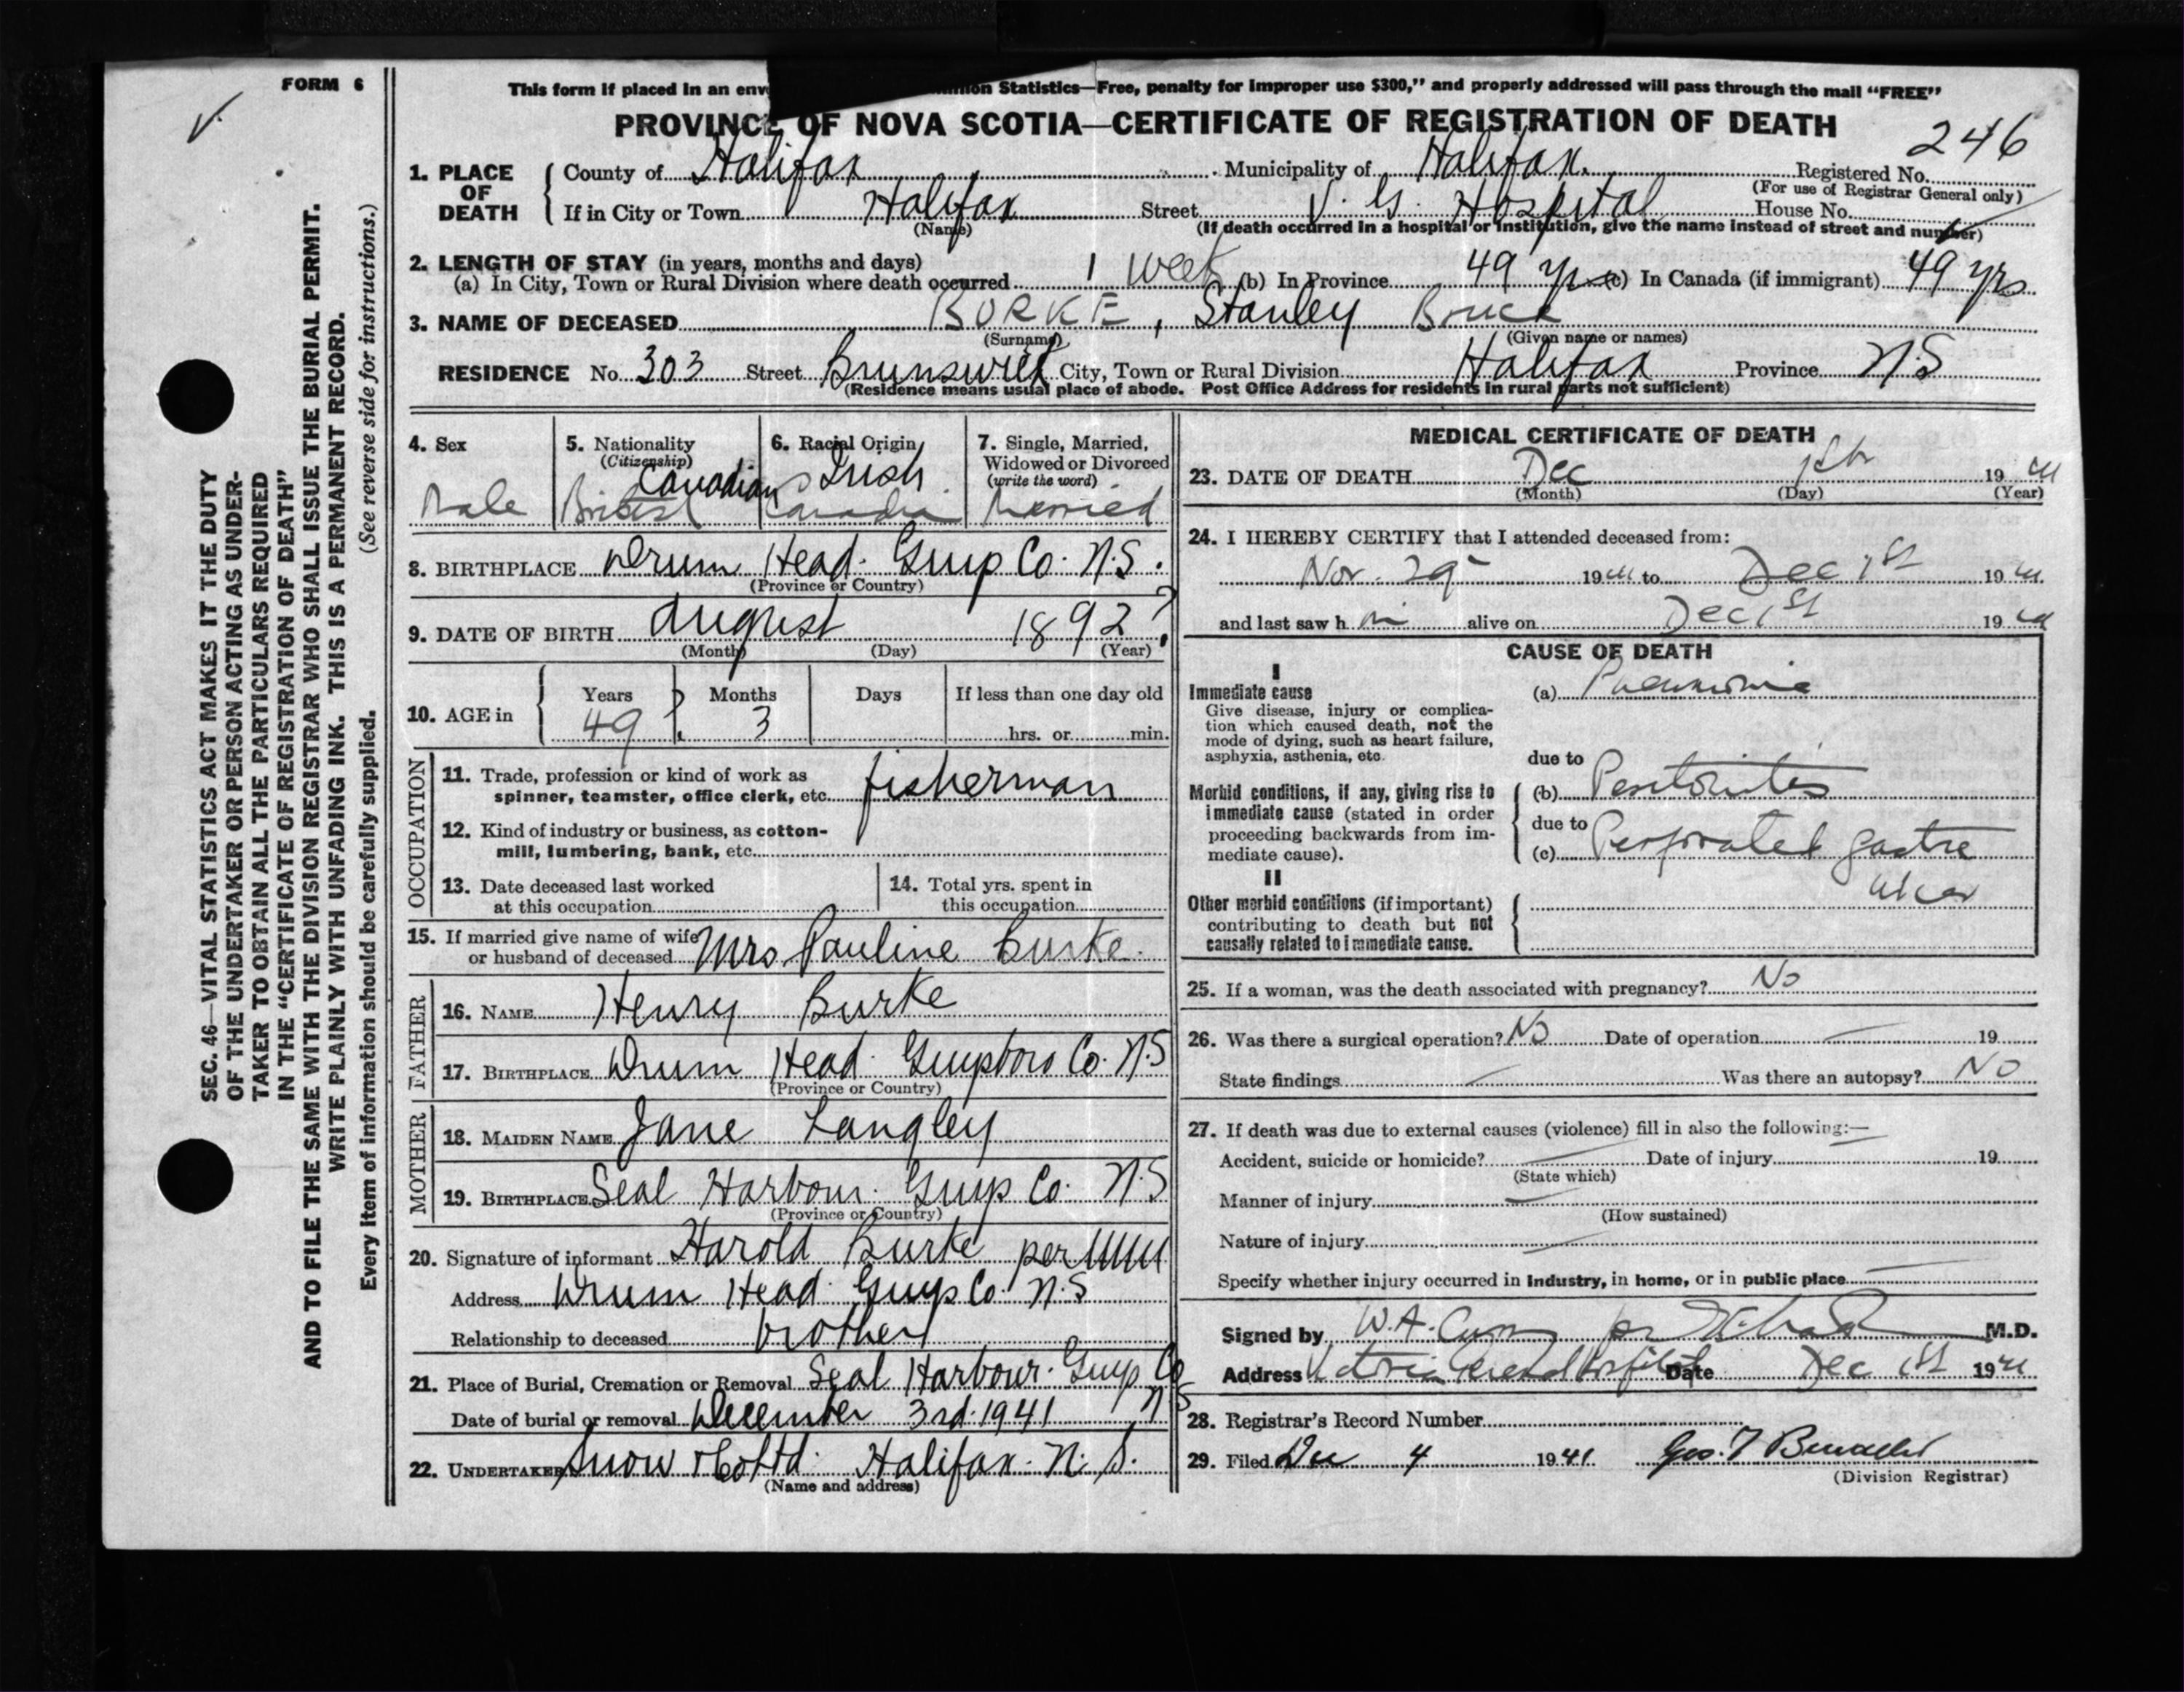 FORM 6
This form if placed in an env
Statistics—Free, penalty for improper use $300," and properly addressed will pass through the mail "FREE"
PROVINCE OF NOVA SCOTIA—CERTIFICATE OF REGISTRATION OF DEATH
246
1. PLACE OF DEATH
County of Halifax Municipality of Halifax. Registered No.
(For use of Registrar General only)
If in City or Town Halifax Street V. G. Hospital House No.
(Name) (If death occurred in a hospital or institution, give the name instead of street and number)
2. LENGTH OF STAY (in years, months and days)
(a) In City, Town or Rural Division where death occurred 1 week (b) In Province 49 yrs (c) In Canada (if immigrant) 49 yrs
3. NAME OF DECEASED BURKE, Stanley
(Surname) (Given name or names)
RESIDENCE No. 303 Street Brunswick City, Town or Rural Division Halifax Province N.S
(Residence means usual place of abode. Post Office Address for residents in rural parts not sufficient)
4. Sex
Male
5. Nationality
(Citizenship)
Canadian
British
6. Racial Origin
Irish
Canadian
7. Single, Married,
Widowed or Divorced
(write the word)
Married
8. BIRTHPLACE Drum Head. Guys Co. N.S.
(Province or Country)
9. DATE OF BIRTH August 1892?
(Month) (Day) (Year)
10. AGE in
Years Months Days If less than one day old
49 ? 3 hrs. or min.
OCCUPATION
11. Trade, profession or kind of work as
spinner, teamster, office clerk, etc. fisherman
12. Kind of industry or business, as cotton-
mill, lumbering, bank, etc.
13. Date deceased last worked
at this occupation
14. Total yrs. spent in
this occupation
15. If married give name of wife
or husband of deceased Mrs Pauline Burke.
FATHER
16. NAME Henry Burke
17. BIRTHPLACE Drum Head. Guysboro Co. N.S
(Province or Country)
MOTHER
18. MAIDEN NAME Jane Langley
19. BIRTHPLACE Seal Harbour. Guys Co. N.S
(Province or Country)
20. Signature of informant Harold Burke per
Address Drum Head Guys Co. N.S
Relationship to deceased brother
21. Place of Burial, Cremation or Removal Seal Harbour. Guys Co
N S
Date of burial or removal December 3rd. 1941
22. UNDERTAKER Snow & Co Ltd. Halifax. N. S.
(Name and address)
MEDICAL CERTIFICATE OF DEATH
23. DATE OF DEATH Dec 1st 1941
(Month) (Day) (Year)
24. I HEREBY CERTIFY that I attended deceased from:
Nov. 29 1941 to Dec 1st 1941
and last saw h im alive on Dec 1st 1941
CAUSE OF DEATH
I
Immediate cause
Give disease, injury or complica-
tion which caused death, not the
mode of dying, such as heart failure,
asphyxia, asthenia, etc.
(a) Pneumonia
due to
Morbid conditions, if any, giving rise to
immediate cause (stated in order
proceeding backwards from im-
mediate cause).
(b) Peritonitis
due to
(c) Perforated gastric
ulcer
II
Other morbid conditions (if important)
contributing to death but not
causally related to immediate cause.
25. If a woman, was the death associated with pregnancy? No
26. Was there a surgical operation? No Date of operation — 19
State findings — Was there an autopsy? NO
27. If death was due to external causes (violence) fill in also the following:—
Accident, suicide or homicide? Date of injury 19
(State which)
Manner of injury
(How sustained)
Nature of injury
Specify whether injury occurred in Industry, in home, or in public place
Signed by W.A. M.D.
Address Victoria General Hospital Date Dec 1st 1941
28. Registrar's Record Number
29. Filed Dec 4 1941
(Division Registrar)
SEC. 46—VITAL STATISTICS ACT MAKES IT THE DUTY
OF THE UNDERTAKER OR PERSON ACTING AS UNDER-
TAKER TO OBTAIN ALL THE PARTICULARS REQUIRED
IN THE "CERTIFICATE OF REGISTRATION OF DEATH"
AND TO FILE THE SAME WITH THE DIVISION REGISTRAR WHO SHALL ISSUE THE BURIAL PERMIT.
WRITE PLAINLY WITH UNFADING INK. THIS IS A PERMANENT RECORD.
Every item of information should be carefully supplied. (See reverse side for instructions.)